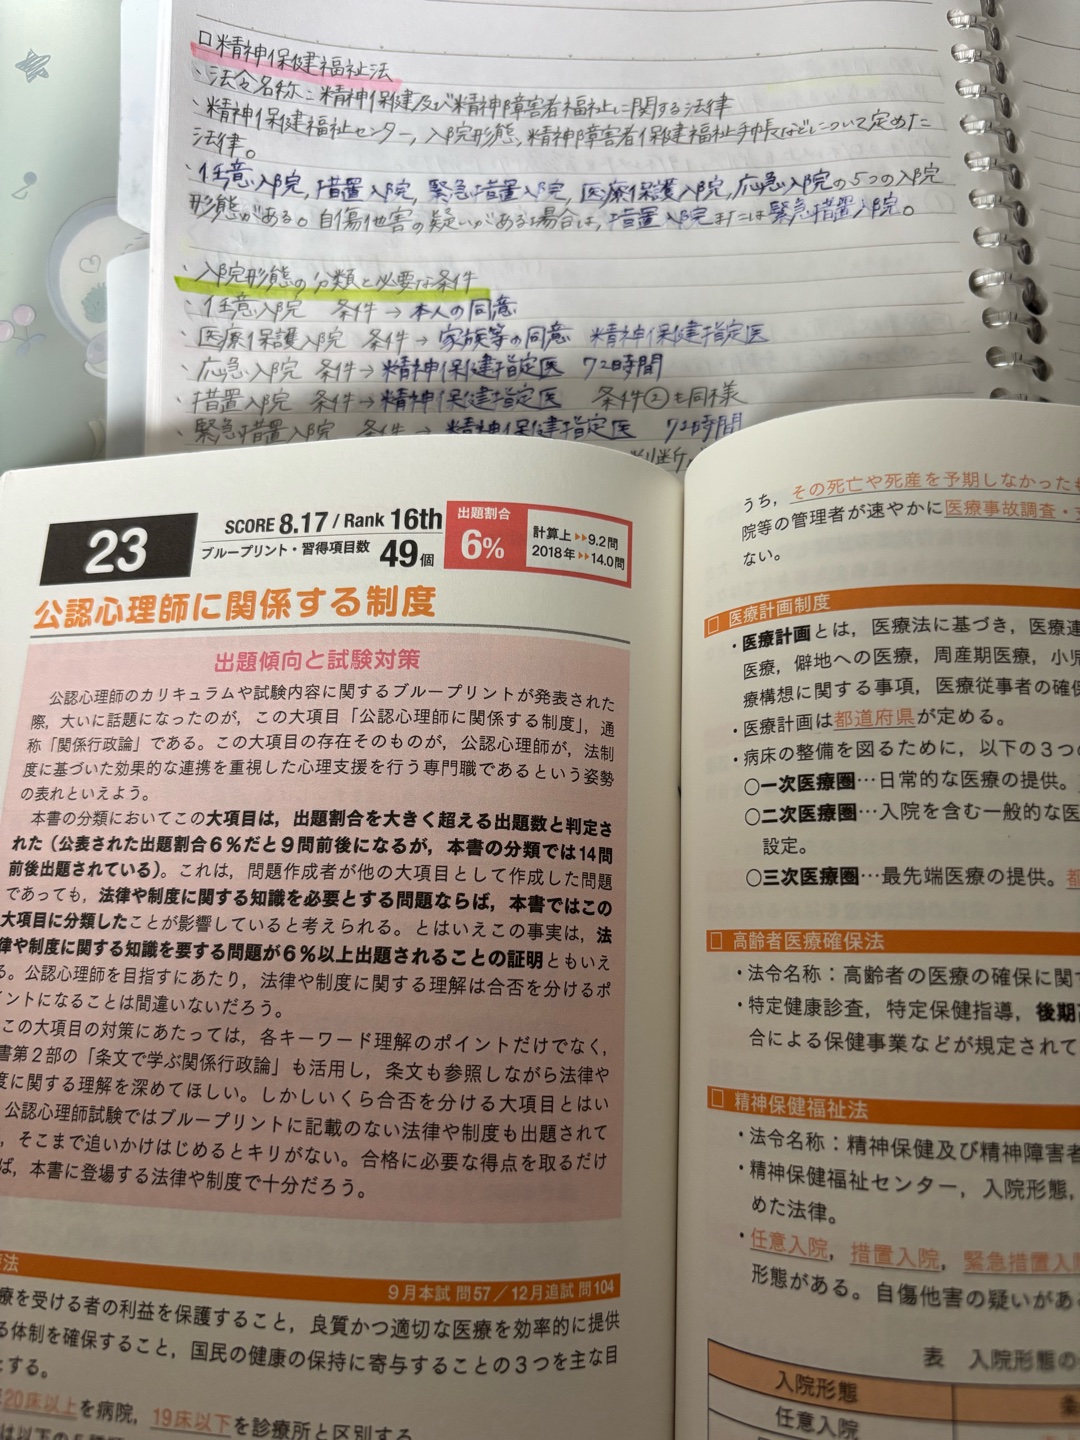 □精神保健福祉法
・法令名称：精神保健及び精神障害者福祉に関する法律
・精神保健福祉センター，入院形態，精神障害者保健福祉手帳などについて定めた
法律。
・任意入院，措置入院，緊急措置入院，医療保護入院，応急入院の5つの入院
形態がある。自傷他害の疑いがある場合は，措置入院または緊急措置入院。
・入院形態の分類と必要な条件
・任意入院 条件→本人の同意
・医療保護入院 条件→家族等の同意 精神保健指定医
・応急入院 条件→精神保健指定医 72時間
・措置入院 条件→精神保健指定医 条件②も同様
・緊急措置入院 条件→精神保健指定医 72時間
判断，
23
SCORE 8.17 / Rank 16th
ブループリント・習得項目数 49個
出題割合
6%
計算上▶▶9.2問
2018年▶▶14.0問
公認心理師に関係する制度
出題傾向と試験対策
公認心理師のカリキュラムや試験内容に関するブループリントが発表された
際，大いに話題になったのが，この大項目「公認心理師に関係する制度」，通
称「関係行政論」である。この大項目の存在そのものが，公認心理師が，法制
度に基づいた効果的な連携を重視した心理支援を行う専門職であるという姿勢
の表れといえよう。
本書の分類においてこの大項目は，出題割合を大きく超える出題数と判定さ
れた（公表された出題割合6％だと9問前後になるが，本書の分類では14問
前後出題されている）。これは，問題作成者が他の大項目として作成した問題
であっても，法律や制度に関する知識を必要とする問題ならば，本書ではこの
大項目に分類したことが影響していると考えられる。とはいえこの事実は，法
律や制度に関する知識を要する問題が6％以上出題されることの証明ともいえ
る。公認心理師を目指すにあたり，法律や制度に関する理解は合否を分けるポ
イントになることは間違いないだろう。
この大項目の対策にあたっては，各キーワード理解のポイントだけでなく，
書第2部の「条文で学ぶ関係行政論」も活用し，条文も参照しながら法律や
度に関する理解を深めてほしい。しかしいくら合否を分ける大項目とはい
，公認心理師試験ではブループリントに記載のない法律や制度も出題されて
，そこまで追いかけはじめるとキリがない。合格に必要な得点を取るだけ
ば，本書に登場する法律や制度で十分だろう。
療法
9月本試 問57／12月追試 問104
療を受ける者の利益を保護すること，良質かつ適切な医療を効率的に提供
る体制を確保すること，国民の健康の保持に寄与することの3つを主な目
とする。
20床以上を病院，19床以下を診療所と区別する
うち，その死亡や死産を予期しなかったも
院等の管理者が速やかに医療事故調査・支
ない。
□ 医療計画制度
・医療計画とは，医療法に基づき，医療連
医療，僻地への医療，周産期医療，小児
療構想に関する事項，医療従事者の確保
・医療計画は都道府県が定める。
・病床の整備を図るために，以下の3つの
○一次医療圏…日常的な医療の提供。
○二次医療圏…入院を含む一般的な医
設定。
○三次医療圏…最先端医療の提供。都
□ 高齢者医療確保法
・法令名称：高齢者の医療の確保に関す
・特定健康診査，特定保健指導，後期高
合による保健事業などが規定されて
□ 精神保健福祉法
・法令名称：精神保健及び精神障害者
・精神保健福祉センター，入院形態，
めた法律。
・任意入院，措置入院，緊急措置入院
形態がある。自傷他害の疑いがある
表 入院形態の
入院形態
条
任意入院